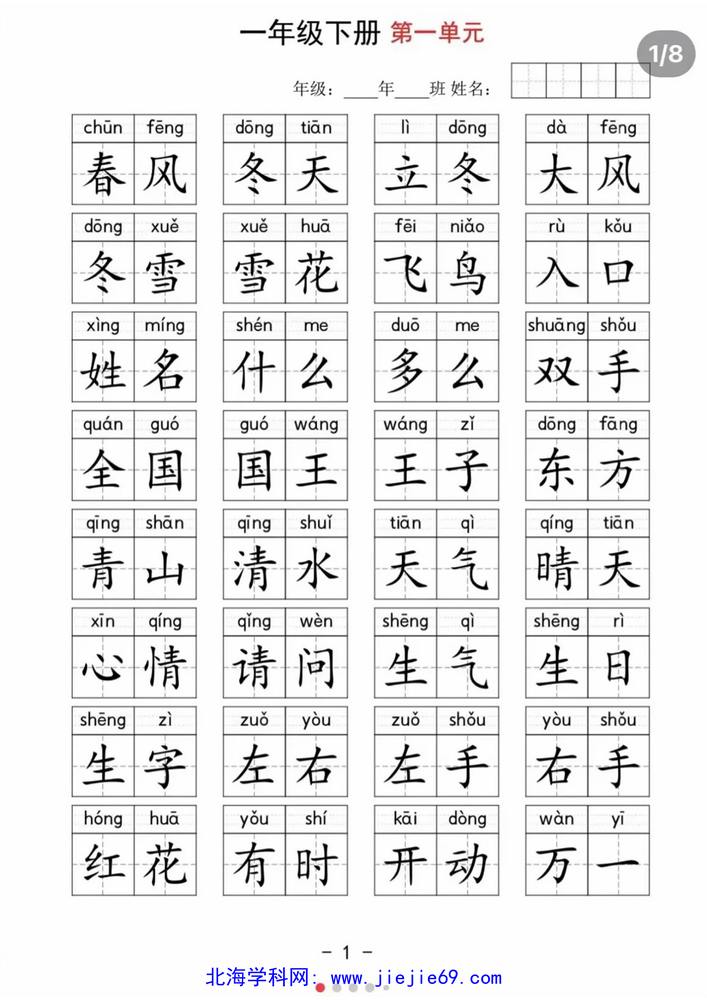 一年级下册 第一单元
1/8
年级：____年____班 姓名：
chūn fēng dōng tiān lì dōng dà fēng
春风 冬天 立冬 大风
dōng xuě xuě huā fēi niǎo rù kǒu
冬雪 雪花 飞鸟 入口
xìng míng shén me duō me shuāng shǒu
姓名 什么 多么 双手
quán guó guó wáng wáng zǐ dōng fāng
全国 国王 王子 东方
qīng shān qīng shuǐ tiān qì qíng tiān
青山 清水 天气 晴天
xīn qíng qǐng wèn shēng qì shēng rì
心情 请问 生气 生日
shēng zì zuǒ yòu zuǒ shǒu yòu shǒu
生字 左右 左手 右手
hóng huā yǒu shí kāi dòng wàn yī
红花 有时 开动 万一
- 1 -
北海学科网：www.jiejie69.com